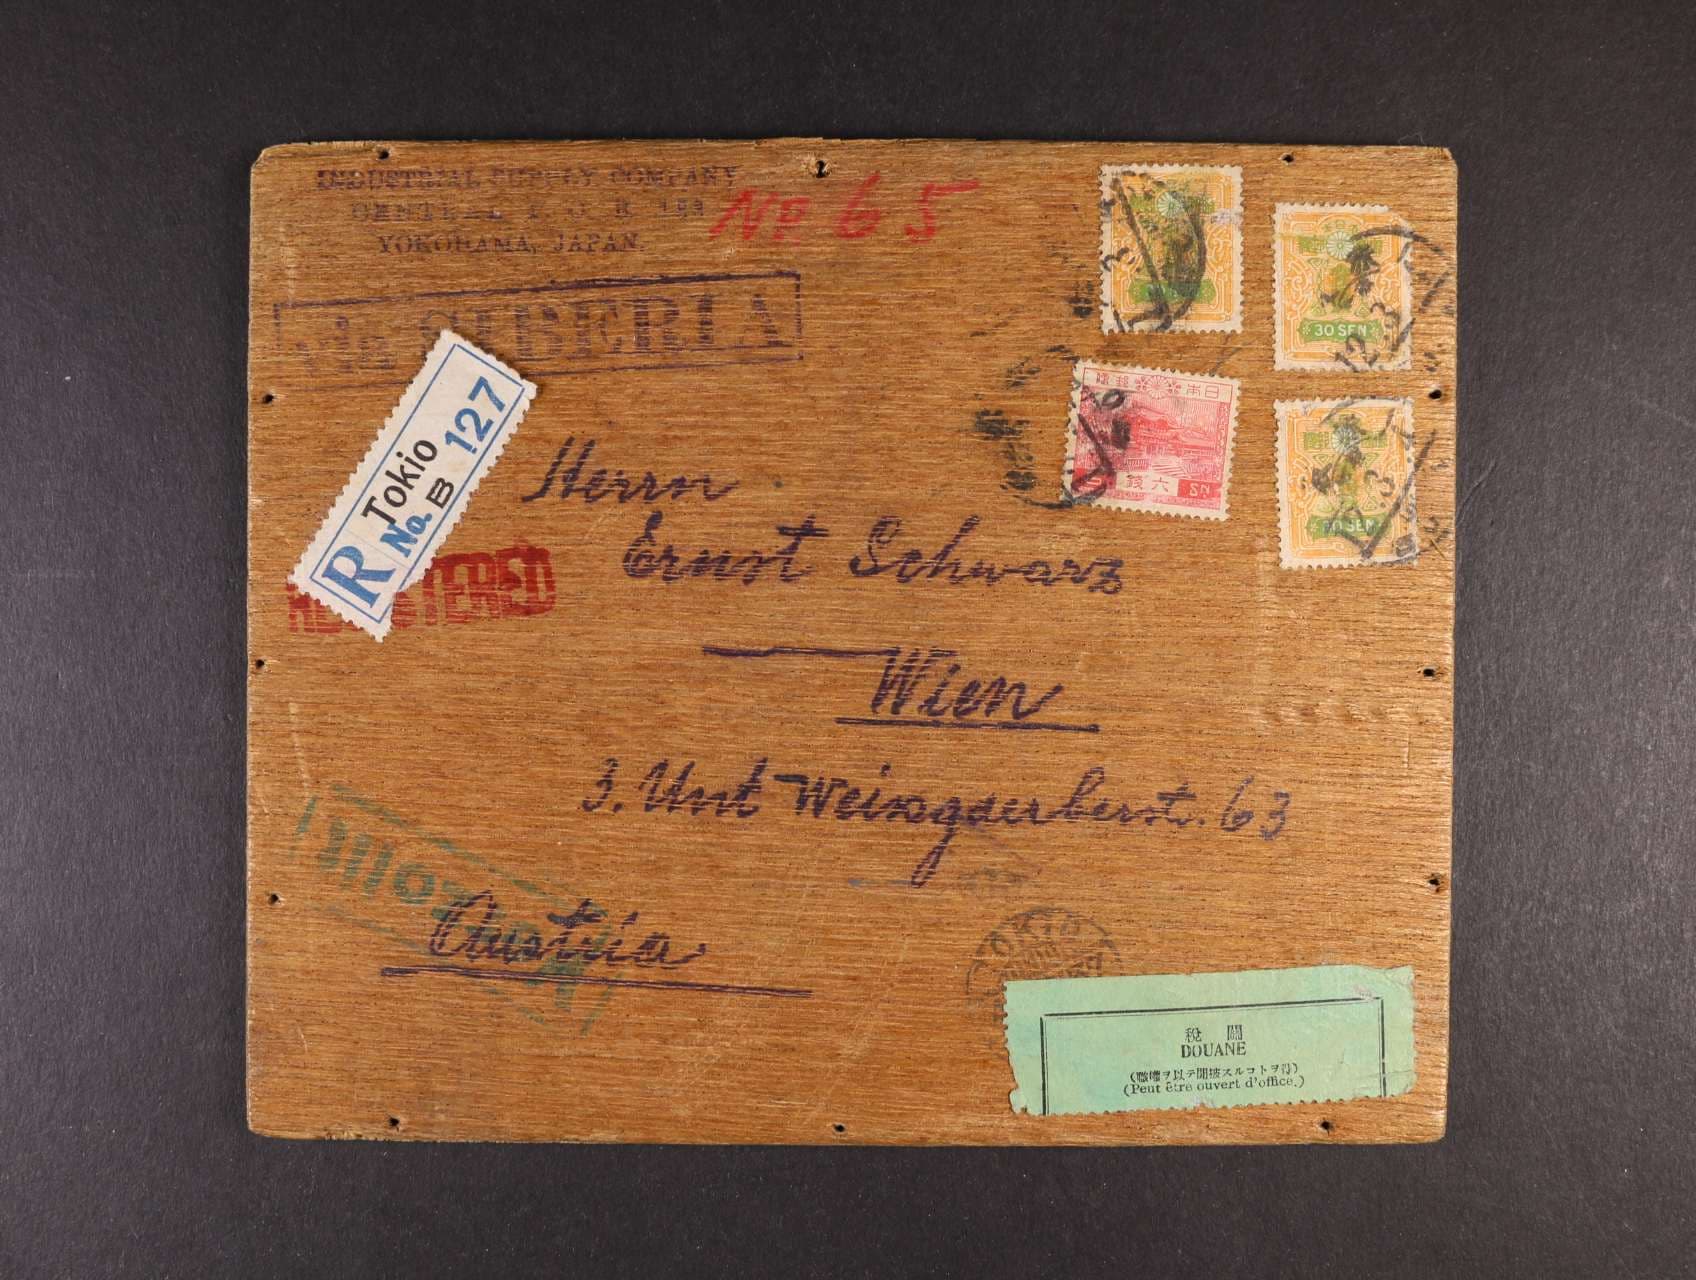 INDUSTRIAL SUPPLY COMPANY
CENTRAL P. O. B
YOKOHAMA, JAPAN.
No 65
via SIBERIA
R Tokio
No. B 127
REGISTERED
30 SEN
30 SEN
日本郵便
六銭
6 SN
Herrn
Ernst Schwarz
Wien
3. Unt Weissgaerberst. 63
Austria
Verzollt
TOKIO
税關
DOUANE
(職權ヲ以テ開披スルコトヲ得)
(Peut être ouvert d'office.)